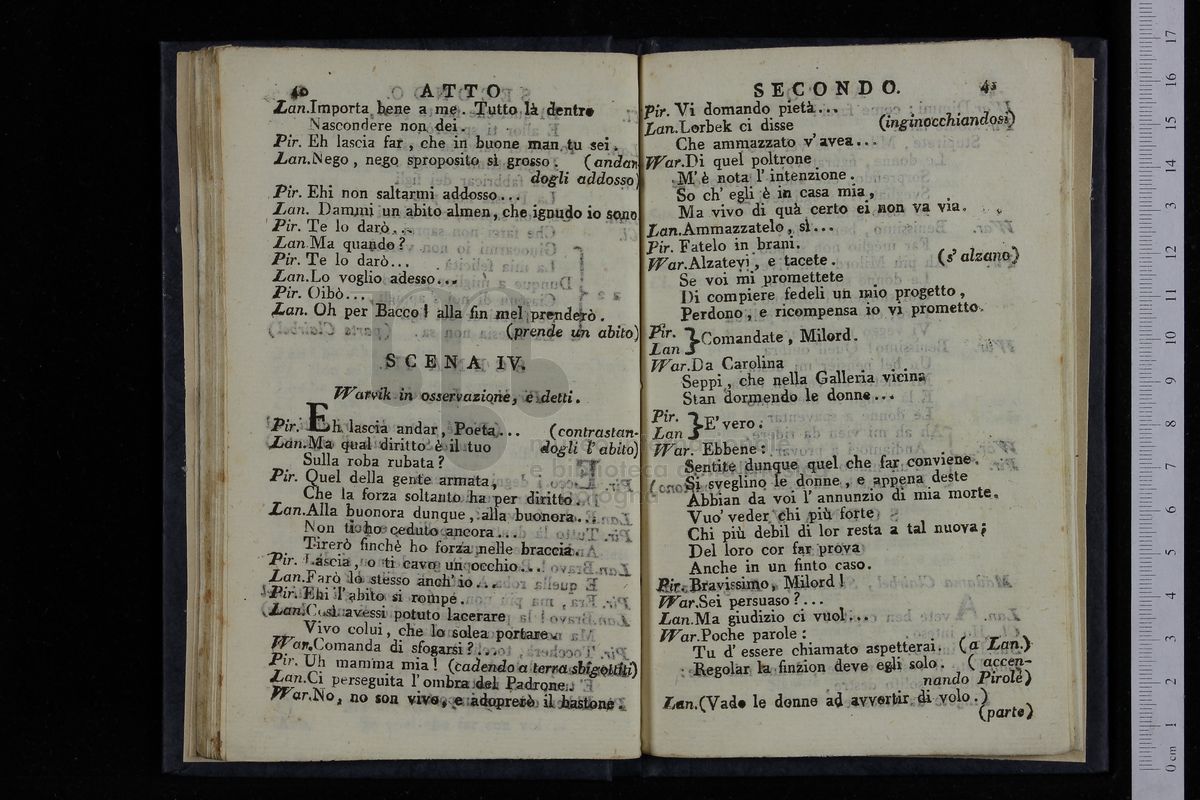 40 ATTO
Lan. Importa bene a me. Tutto là dentro
Nascondere non dei.
Pir. Eh lascia far, che in buone man tu sei.
Lan. Nego, nego sproposito sì grosso. (andan
dogli addosso)
Pir. Ehi non saltarmi addosso...
Lan. Dammi un abito almen, che ignudo io sono
Pir. Te lo darò...
Lan. Ma quando?
Pir. Te lo darò...
Lan. Lo voglio adesso...
Pir. Oibò...
Lan. Oh per Bacco! alla fin mel prenderò.
(prende un abito)
SCENA IV.
Warvik in osservazione, e detti.
Pir. Eh lascia andar, Poeta... (contrastan-
Lan. Ma qual diritto è il tuo dogli l'abito)
Sulla roba rubata?
Pir. Quel della gente armata,
Che la forza soltanto ha per diritto.
Lan. Alla buonora dunque, alla buonora...
Non ti ho ceduto ancora...
Tirerò finchè ho forza nelle braccia.
Pir. Lascia, o ti cavo un occhio...
Lan. Farò lo stesso anch'io...
Pir. Ehi l'abito si rompe.
Lan. Così avessi potuto lacerare
Vivo colui, che lo solea portare.
War. Comanda di sfogarsi?...
Pir. Uh mamma mia! (cadendo a terra sbigottiti)
Lan. Ci perseguita l'ombra del Padrone.
War. No, no son vivo, e adoprerò il bastone.
SECONDO. 41
Pir. Vi domando pietà...
Lan. Lorbek ci disse (inginocchiandosi)
Che ammazzato v'avea...
War. Di quel poltrone
M'è nota l'intenzione.
So ch'egli è in casa mia,
Ma vivo di quà certo ei non va via.
Lan. Ammazzatelo, sì...
Pir. Fatelo in brani.
War. Alzatevi, e tacete. (s'alzano)
Se voi mi promettete
Di compiere fedeli un mio progetto,
Perdono, e ricompensa io vi prometto.
Pir.
Lan } Comandate, Milord.
War. Da Carolina
Seppi, che nella Galleria vicina
Stan dormendo le donne...
Pir.
Lan } E' vero.
War. Ebbene:
Sentite dunque quel che far conviene.
Si sveglino le donne, e appena deste
Abbian da voi l'annunzio di mia morte.
Vuo' veder chi più forte
Chi più debil di lor resta a tal nuova;
Del loro cor far prova
Anche in un finto caso.
Pir. Bravissimo, Milord!
War. Sei persuaso?...
Lan. Ma giudizio ci vuol...
War. Poche parole:
Tu d'essere chiamato aspetterai. (a Lan.)
Regolar la finzion deve egli solo. (accen-
nando Pirolè)
Lan. (Vado le donne ad avvertir di volo.)
(parte)